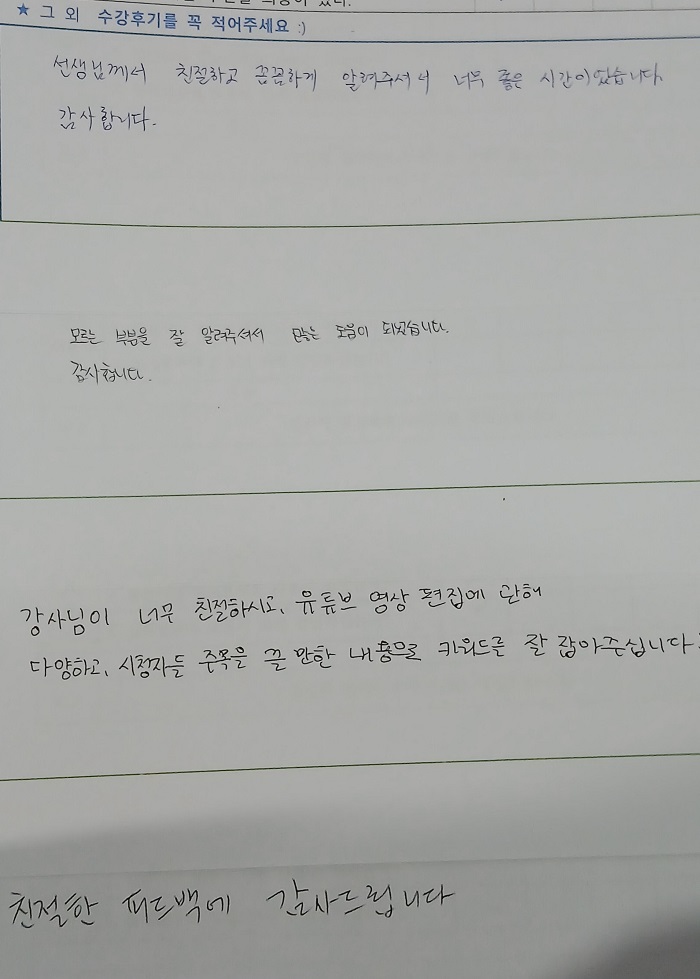 ★ 그 외 수강후기를 꼭 적어주세요 :)
선생님께서 친절하고 꼼꼼하게 알려주셔서 너무 좋은 시간이었습니다
감사합니다.
모르는 부분을 잘 알려주셔서 많은 도움이 되었습니다.
감사합니다.
강사님이 너무 친절하시고, 유튜브 영상 편집에 관해
다양하고, 시청자들 주목을 끌 만한 내용으로 키워드를 잘 잡아주십니다
친절한 피드백에 감사드립니다